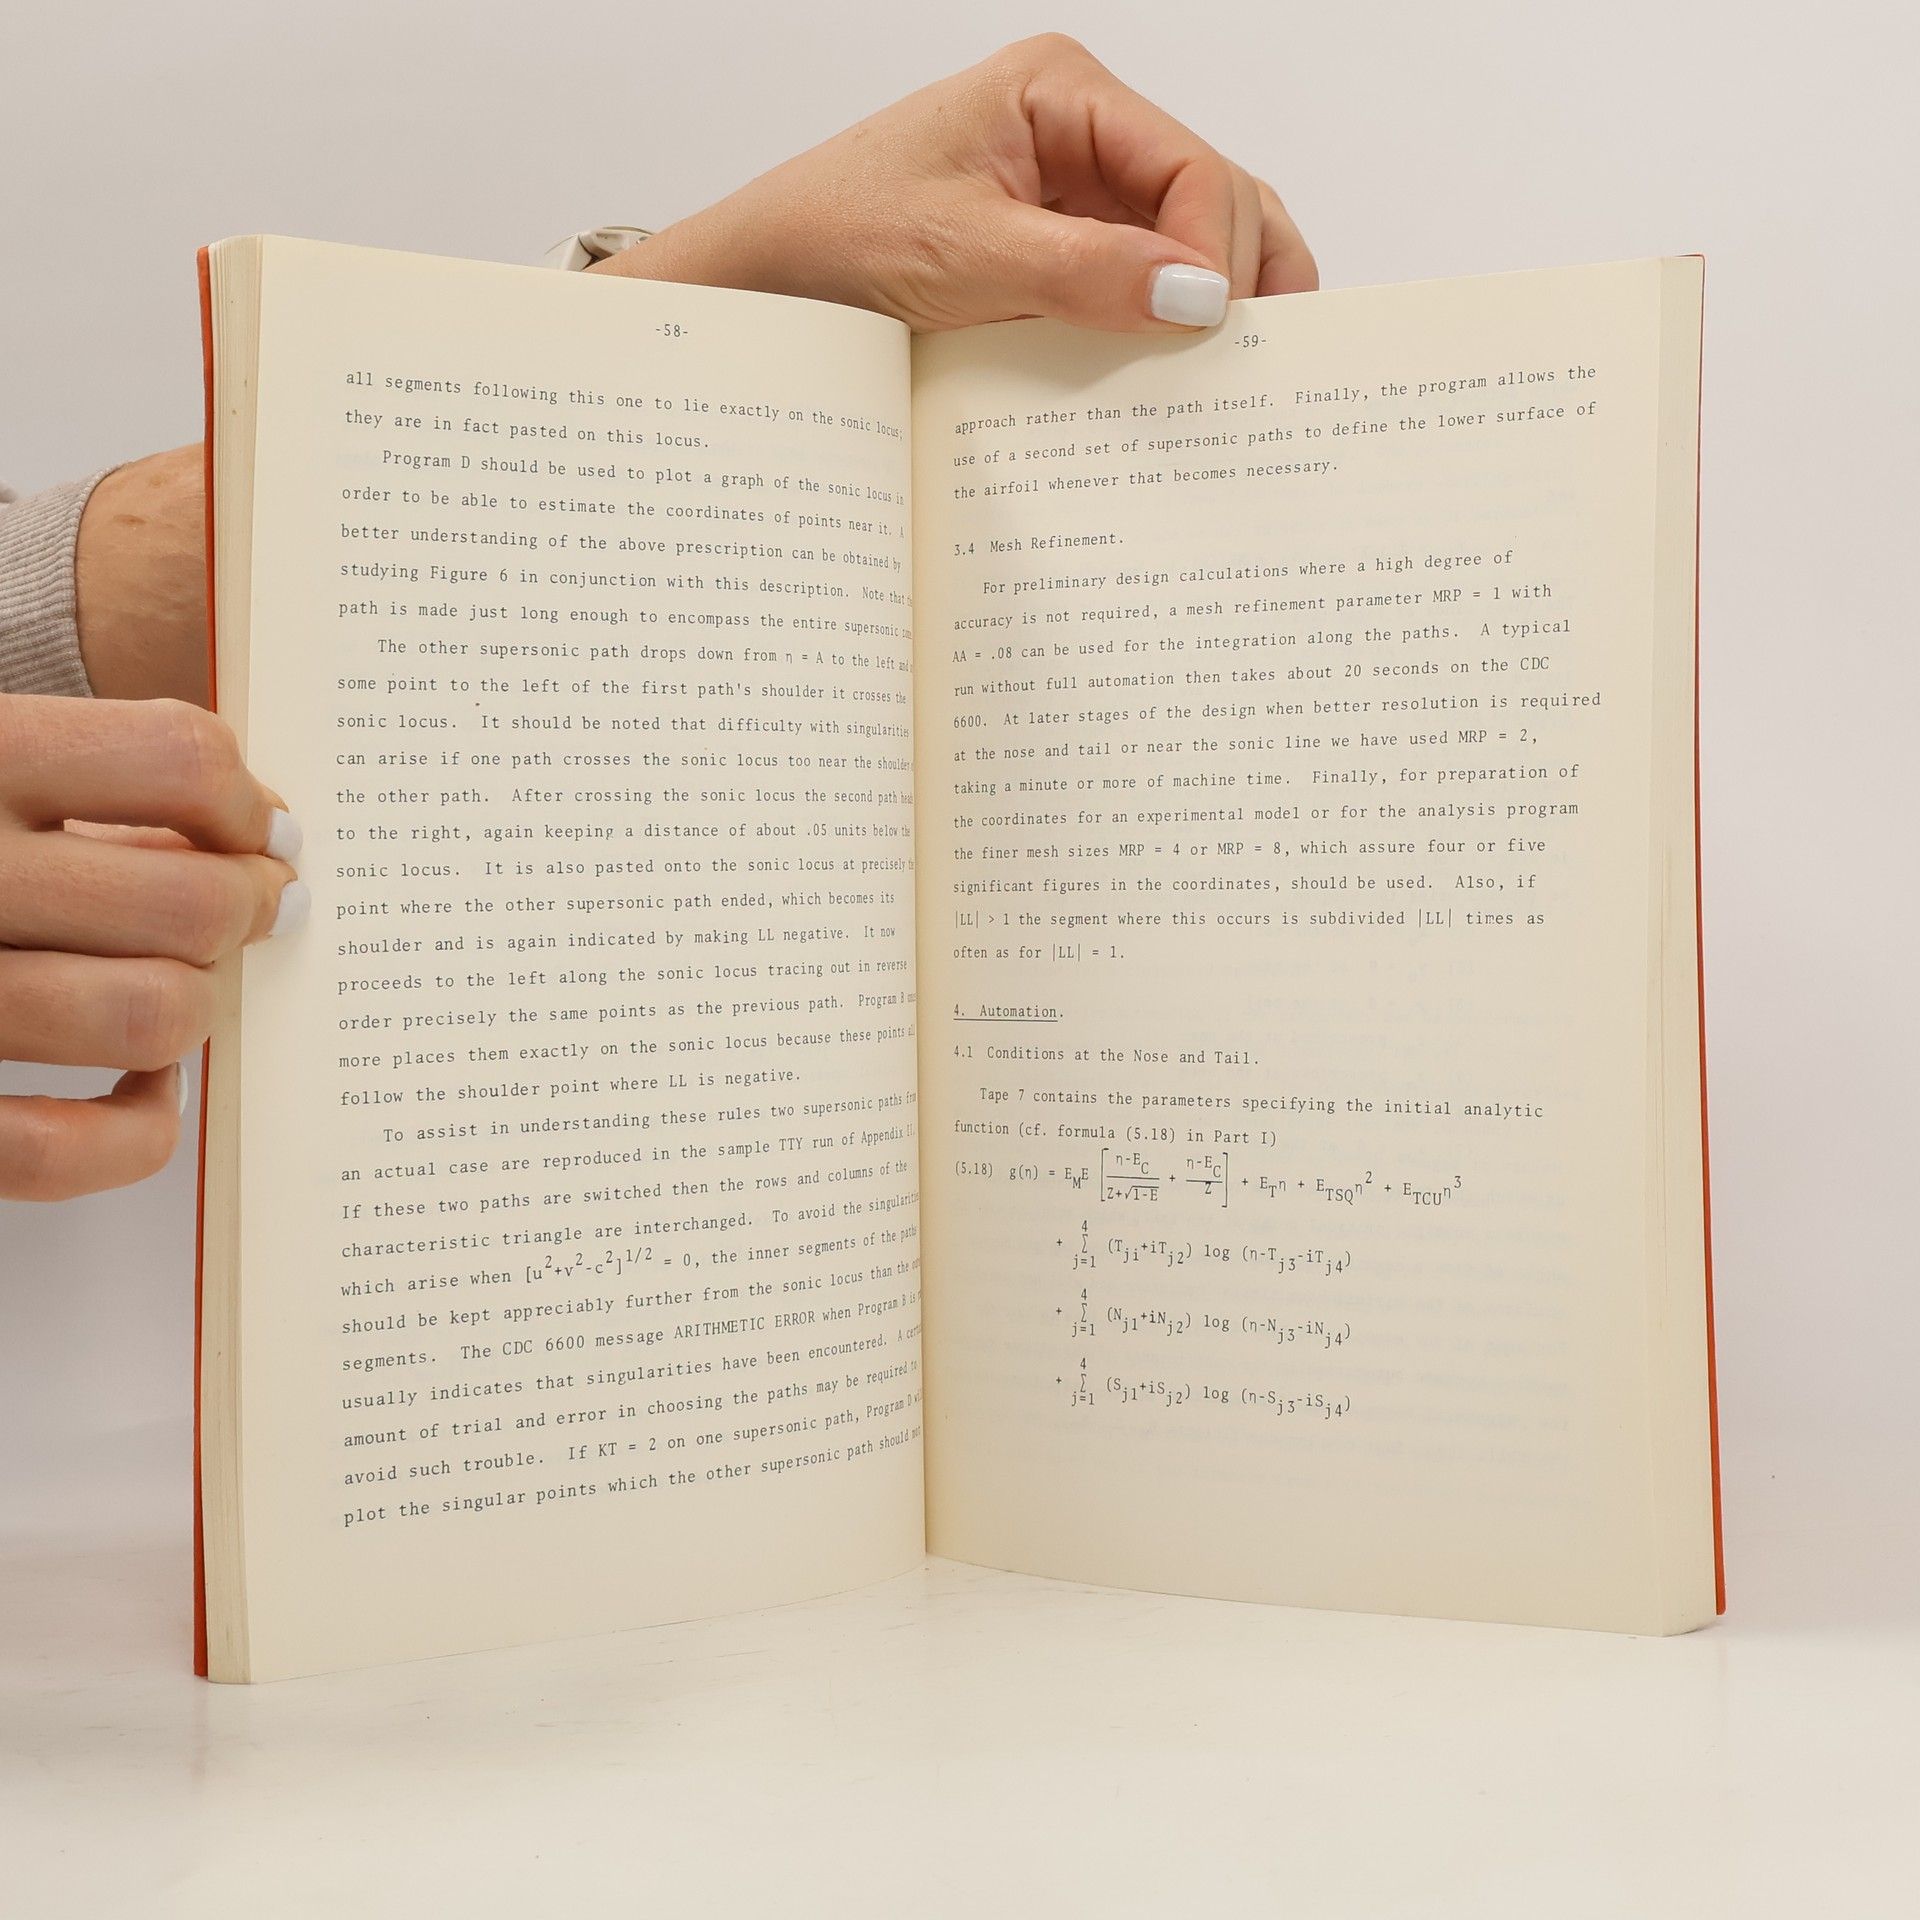 -58-
all segments following this one to lie exactly on the sonic locus;
they are in fact pasted on this locus.
Program D should be used to plot a graph of the sonic locus in
order to be able to estimate the coordinates of points near it. A
better understanding of the above prescription can be obtained by
studying Figure 6 in conjunction with this description. Note that
path is made just long enough to encompass the entire supersonic
The other supersonic path drops down from η = A to the left and
some point to the left of the first path's shoulder it crosses the
sonic locus. It should be noted that difficulty with singularities
can arise if one path crosses the sonic locus too near the shoulder
the other path. After crossing the sonic locus the second path
to the right, again keeping a distance of about .05 units below the
sonic locus. It is also pasted onto the sonic locus at precisely
point where the other supersonic path ended, which becomes its
shoulder and is again indicated by making LL negative. It now
proceeds to the left along the sonic locus tracing out in reverse
order precisely the same points as the previous path. Program B
more places them exactly on the sonic locus because these points
follow the shoulder point where LL is negative.
To assist in understanding these rules two supersonic paths
an actual case are reproduced in the sample TTY run of Appendix
If these two paths are switched then the rows and columns of the
characteristic triangle are interchanged. To avoid the singularities
which arise when [u²+v²-c²]^1/2 = 0, the inner segments of the paths
should be kept appreciably further from the sonic locus than the
segments. The CDC 6600 message ARITHMETIC ERROR when Program B is
usually indicates that singularities have been encountered. A
amount of trial and error in choosing the paths may be required to
avoid such trouble. If KT = 2 on one supersonic path, Program D
plot the singular points which the other supersonic path should
-59-
approach rather than the path itself. Finally, the program allows the
use of a second set of supersonic paths to define the lower surface of
the airfoil whenever that becomes necessary.
3.4 Mesh Refinement.
For preliminary design calculations where a high degree of
accuracy is not required, a mesh refinement parameter MRP = 1 with
AA = .08 can be used for the integration along the paths. A typical
run without full automation then takes about 20 seconds on the CDC
6600. At later stages of the design when better resolution is required
at the nose and tail or near the sonic line we have used MRP = 2,
taking a minute or more of machine time. Finally, for preparation of
the coordinates for an experimental model or for the analysis program
the finer mesh sizes MRP = 4 or MRP = 8, which assure four or five
significant figures in the coordinates, should be used. Also, if
|LL| > 1 the segment where this occurs is subdivided |LL| times as
often as for |LL| = 1.
4. Automation.
4.1 Conditions at the Nose and Tail.
Tape 7 contains the parameters specifying the initial analytic
function (cf. formula (5.18) in Part I)
(5.18) g(η) = E_M E [(η-E_C)/(2+√1-E) + (η-E_C)/2] + E_T η + E_TSQ η² + E_TCU η³
+ Σ_{j=1}^{4} (T_ji+iT_j2) log (η-T_j3-iT_j4)
+ Σ_{j=1}^{4} (N_j1+iN_j2) log (η-N_j3-iN_j4)
+ Σ_{j=1}^{4} (S_j1+iS_j2) log (η-S_j3-iS_j4)